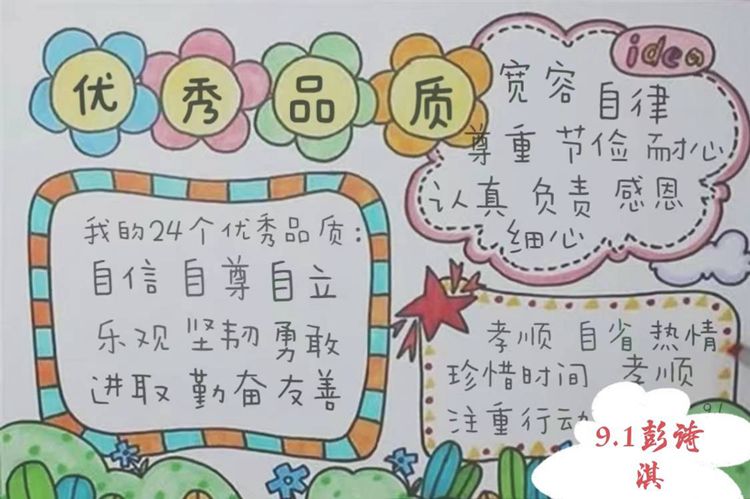 优秀品质
idea
宽容 自律
尊重 节俭 耐心
认真 负责 感恩
细心
我的24个优秀品质：
自信 自尊 自立
乐观 坚韧 勇敢
进取 勤奋 友善
孝顺 自省 热情
珍惜时间 孝顺
注重行动
9.1彭诗
淇